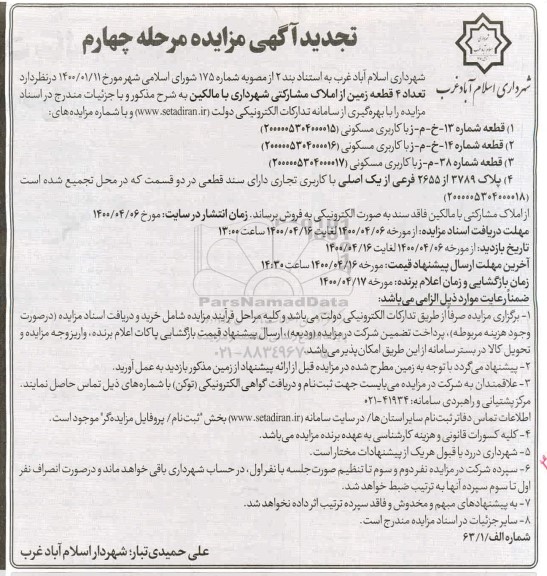 تجدید آگهی مزایده مرحله چهارم
شهرداری اسلام آباد غرب
شهرداری اسلام آباد غرب به استناد بند ۲ از مصوبه شماره ۱۷۵ شورای اسلامی شهر مورخ ۱۴۰۰/۰۱/۱۱ در نظر دارد
تعداد ۴ قطعه زمین از املاک مشارکتی شهرداری با مالکین به شرح مذکور و با جزئیات مندرج در اسناد
مزایده را با بهره‌گیری از سامانه تدارکات الکترونیکی دولت (www.setadiran.ir) و با شماره مزایده‌های:
۱) قطعه شماره ۱۳-خ-م-ز با کاربری مسکونی (۲۰۰۰۰۰۵۳۰۴۰۰۰۰۱۵)
۲) قطعه شماره ۱۴-خ-م-ز با کاربری مسکونی (۲۰۰۰۰۰۵۳۰۴۰۰۰۰۱۶)
۳) قطعه شماره ۳۸-م-ز با کاربری مسکونی (۲۰۰۰۰۰۵۳۰۴۰۰۰۰۱۷)
۴) پلاک ۳۷۸۹ از ۲۶۵۵ فرعی از یک اصلی با کاربری تجاری دارای سند قطعی در دو قسمت که در محل تجمیع شده است
(۲۰۰۰۰۰۵۳۰۴۰۰۰۰۱۸)
از املاک مشارکتی با مالکین فاقد سند به صورت الکترونیکی به فروش برساند. زمان انتشار در سایت: مورخ ۱۴۰۰/۰۴/۰۶
مهلت دریافت اسناد مزایده: از مورخه ۱۴۰۰/۰۴/۰۶ لغایت ۱۴۰۰/۰۴/۱۶ ساعت ۱۳:۰۰
تاریخ بازدید: از مورخه ۱۴۰۰/۰۴/۰۶ لغایت ۱۴۰۰/۰۴/۱۶
آخرین مهلت ارسال پیشنهاد قیمت: مورخه ۱۴۰۰/۰۴/۱۶ ساعت ۱۴:۳۰
زمان بازگشایی و زمان اعلام برنده: مورخه ۱۴۰۰/۰۴/۱۷
ضمنا رعایت موارد ذیل الزامی می‌باشد:
۱- برگزاری مزایده صرفاً از طریق تدارکات الکترونیکی دولت می‌باشد و کلیه مراحل فرآیند مزایده شامل خرید و دریافت اسناد مزایده (درصورت
وجود هزینه مربوطه)، پرداخت تضمین شرکت در مزایده (ودیعه)، ارسال پیشنهاد قیمت بازگشایی پاکات اعلام برنده، واریز وجه مزایده و
تحویل کالا در بستر سامانه از این طریق امکان پذیر می‌باشد.
۲- پیشنهاد می‌گردد با توجه به زمین مطرح شده در مزایده قبل از ارائه پیشنهاد از زمین مذکور بازدید به عمل آورید.
۳- علاقمندان به شرکت در مزایده می‌بایست جهت ثبت‌نام و دریافت گواهی الکترونیکی (توکن) با شماره‌های ذیل تماس حاصل نمایند.
مرکز پشتیبانی و راهبردی سامانه: ۴۱۹۳۴-۰۲۱
اطلاعات تماس دفاتر ثبت‌نام سایر استان‌ها/ در سایت سامانه (www.setadiran.ir) بخش "ثبت‌نام / پروفایل مزایده‌گر" موجود است.
۴- کلیه کسورات قانونی و هزینه کارشناسی به عهده برنده مزایده می‌باشد.
۵- شهرداری در رد یا قبول هر یک از پیشنهادات مختار است.
۶- سپرده شرکت در مزایده نفر دوم و سوم تا تنظیم صورت جلسه با نفر اول، در حساب شهرداری باقی خواهد ماند و درصورت انصراف نفر
اول تا سوم سپرده آنها به ترتیب ضبط خواهد شد.
۷- به پیشنهادهای مبهم و مخدوش و فاقد سپرده ترتیب اثر داده نخواهد شد.
۸- سایر جزئیات در اسناد مزایده مندرج است.
شماره الف/۶۳/۱
علی حمیدی‌تبار؛ شهردار اسلام آباد غرب
ParsNamadData